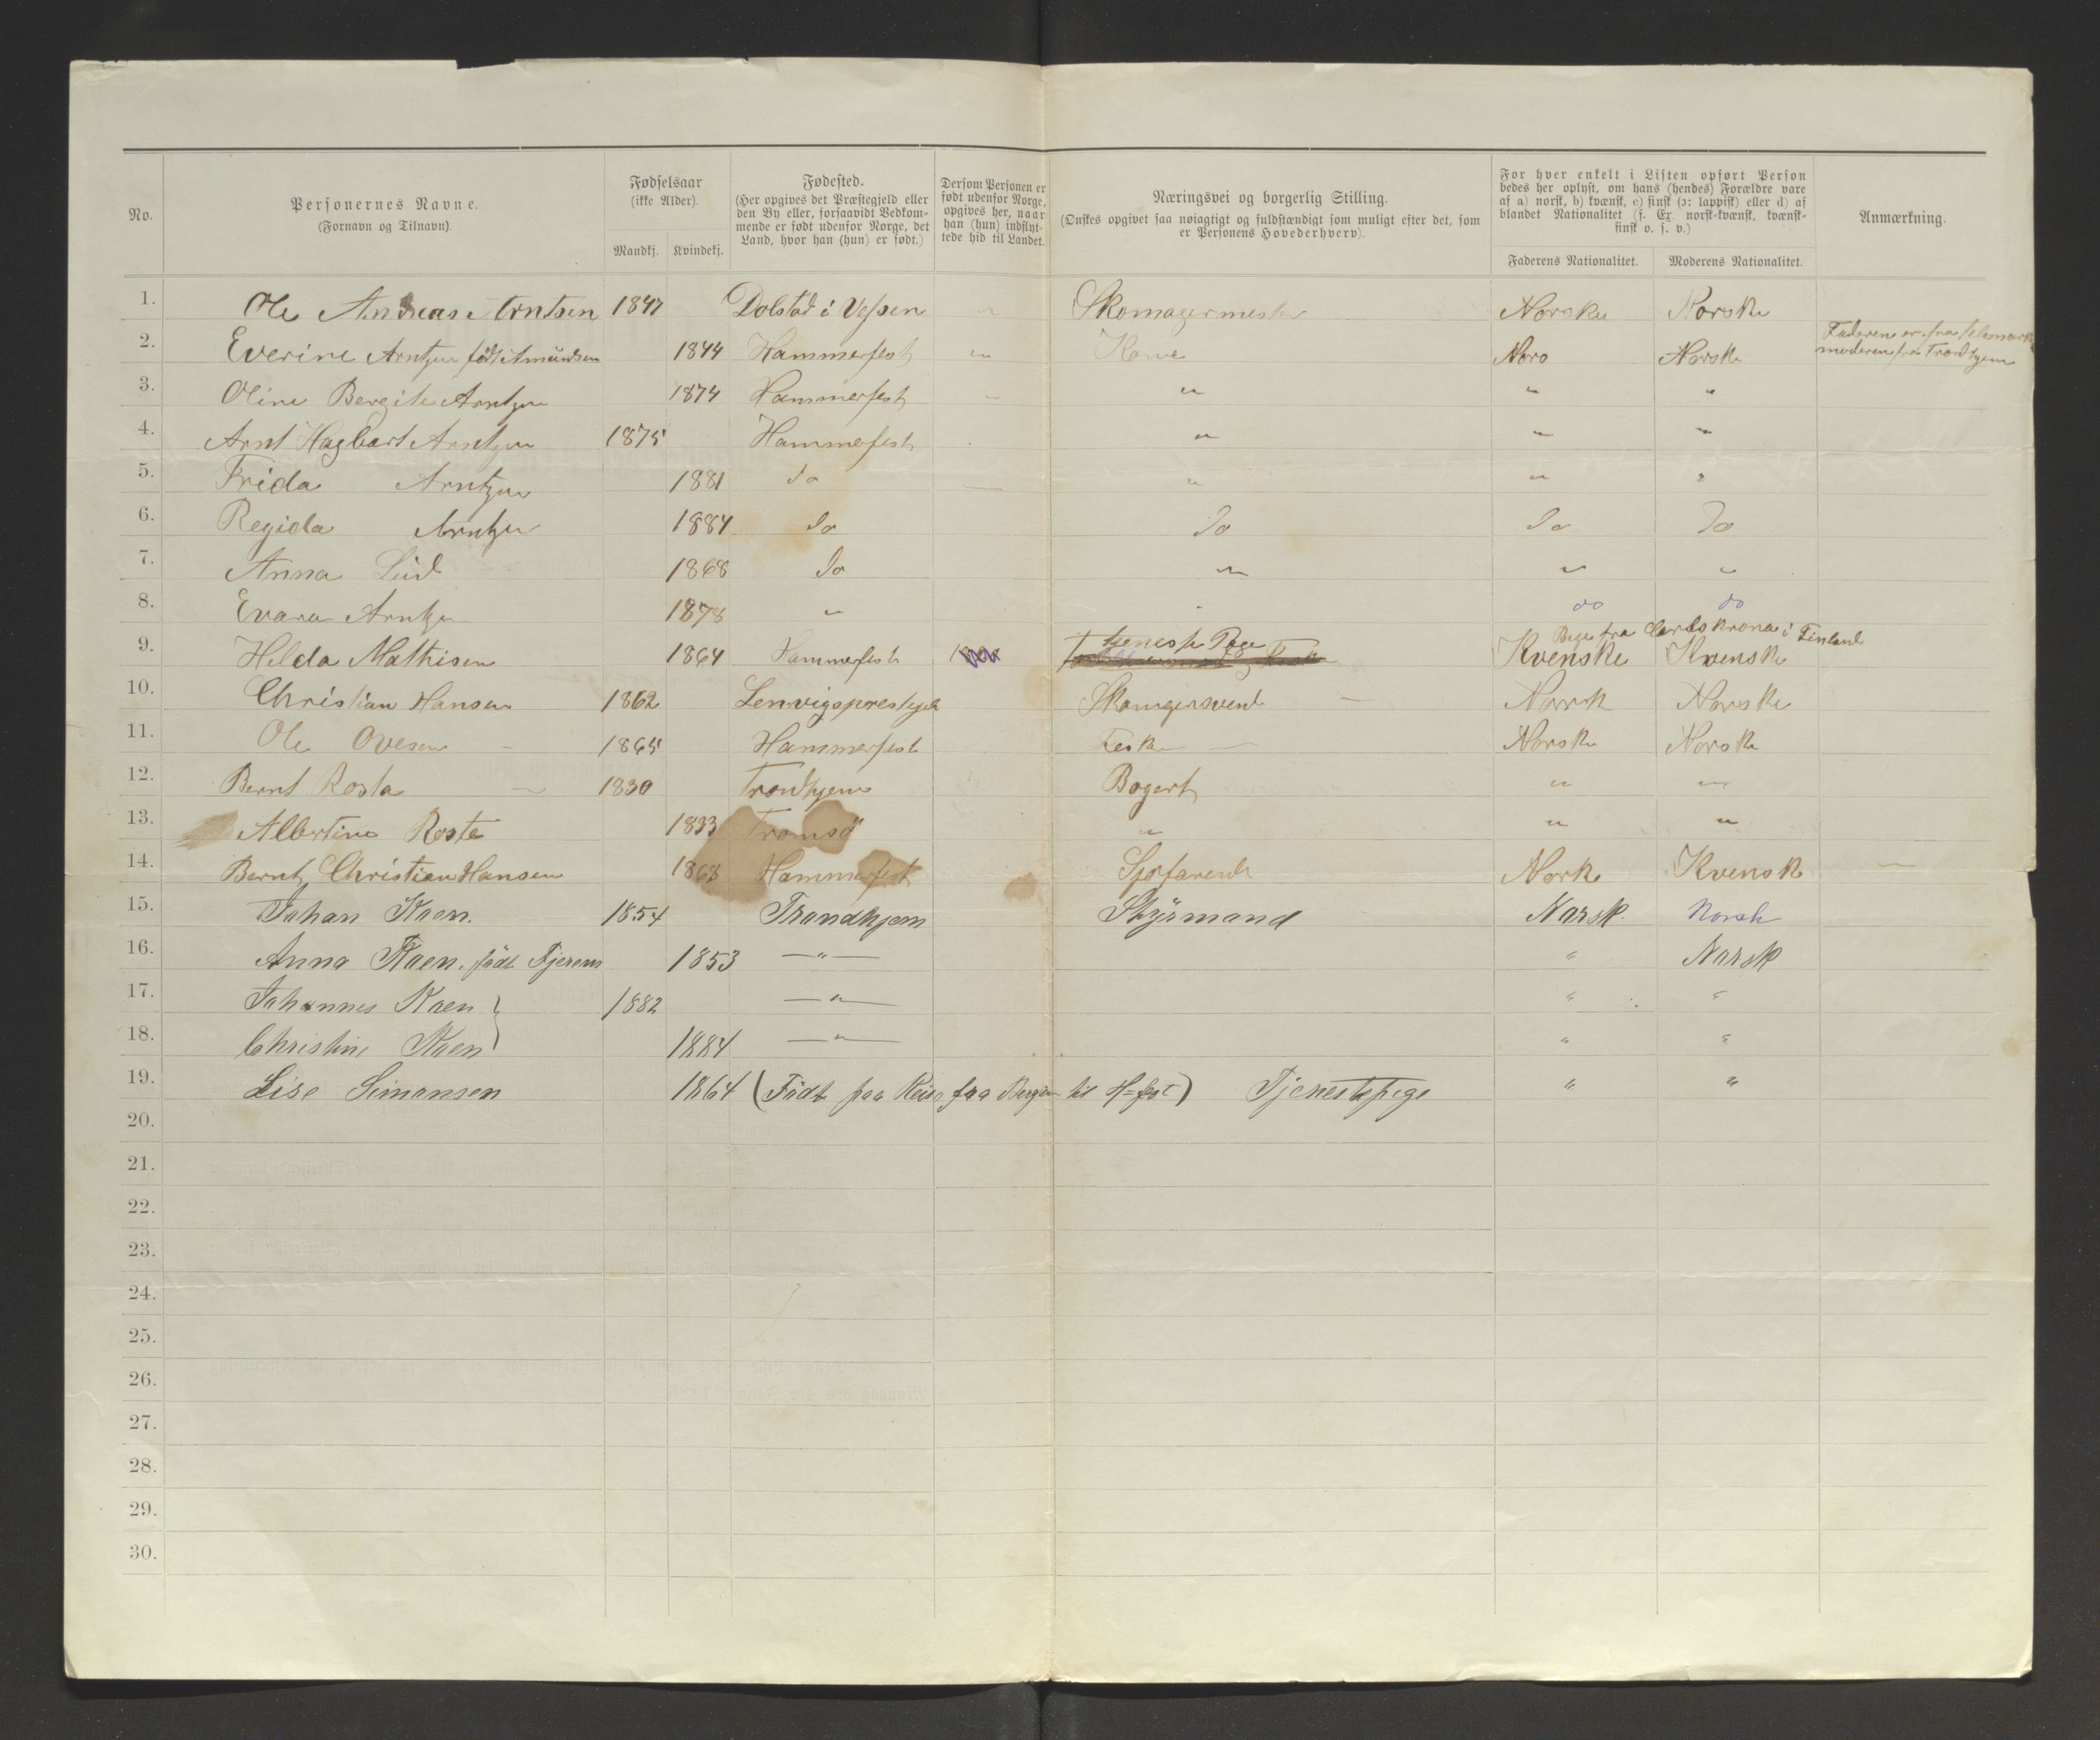 No.
Personernes Navne.
(Fornavn og Tilnavn).
Fødselsaar
(ikke Alder).
Mandkj. Kvindekj.
Fødested.
(Her opgives det Præstegjeld eller
den By eller, forsaavidt Vedkom-
mende er født udenfor Norge, det
Land, hvor han (hun) er født.)
Dersom Personen er
født udenfor Norge,
opgives her, naar
han (hun) indflyt-
tede hid til Landet.
Næringsvei og borgerlig Stilling.
(Ønskes opgivet saa nøiagtigt og fuldstændigt som muligt efter det, som
er Personens Hovederhverv).
For hver enkelt i Listen opført Person
bedes her oplyst, om hans (hendes) Forældre vare
af a) norsk, b) kvænsk, c) finsk (ɔ: lappisk) eller d) af
blandet Nationalitet (f. Ex. norsk-kvænsk, kvænsk-
finsk o. s. v.)
Faderens Nationalitet. Moderens Nationalitet.
Anmærkning.
1. Ole Andreas Arntsen 1847 Dolstad i Vefsen " Skomagermester Norske Norske
2. Everine Arntzen født Amundsen 1844 Hammerfest " Kone Nors Norsk Faderen er fra
moderen fra Trondhjem
3. Oline Bergite Arntzen 1874 Hammerfest " " " "
4. Arnt Hagbart Arntzen 1875 Hammerfest " " "
5. Frida Arntzen 1881 do — " " "
6. Regida Arntzen 1884 do do do do
7. Anna Lind 1868 do " " "
8. Evara Arntzen 1878 " " do do
9. Hilda Mathisen 1864 Hammerfest tjeneste Pige Kvenske Kvensk
Bege fra Carlskrona i Finland
10. Christian Hansen 1862 Lenvigsprestegjeld Skomagersvend — Norsk Norske
11. Ole Ovesen 1865 Hammerfest Fesker — Norske Norsk
12. Bernt Rosta 1830 Trondhjem Bogert " "
13. Albertine Rosta 1833 Tromsø " " "
14. Bernt Christian Hansen 1868 Hammerfest Sjøfarende Nork Kvensk —
15. Johan Kaen. 1854 Trondhjem Styrmand Norsk Norsk
16. Anna Kaen. født Tjerem 1853 —"— " Norsk
17. Johannes Kaen 1882 —"— " "
18. Christine Kaen 1884 —"— " "
19. Lise Simonsen 1864 (Født paa Reise fra Bergen til H=fest) Tjenestepige " "
20.
21.
22.
23.
24.
25.
26.
27.
28.
29.
30.